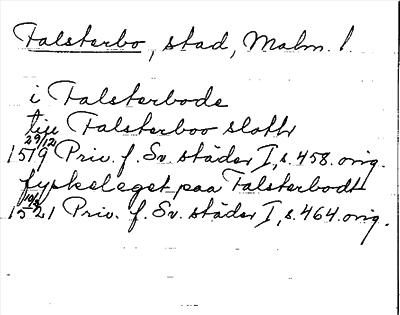 Falsterbo, stad, Malm. l.
i Falsterbode
tiji Falsterboo slothr
29/12
1519 Priv. f. Sv. städer I, s. 458. orig.
fyskeleget paa Falsterbodt
10/2
1521 Priv. f. Sv. städer I, s. 464. orig.